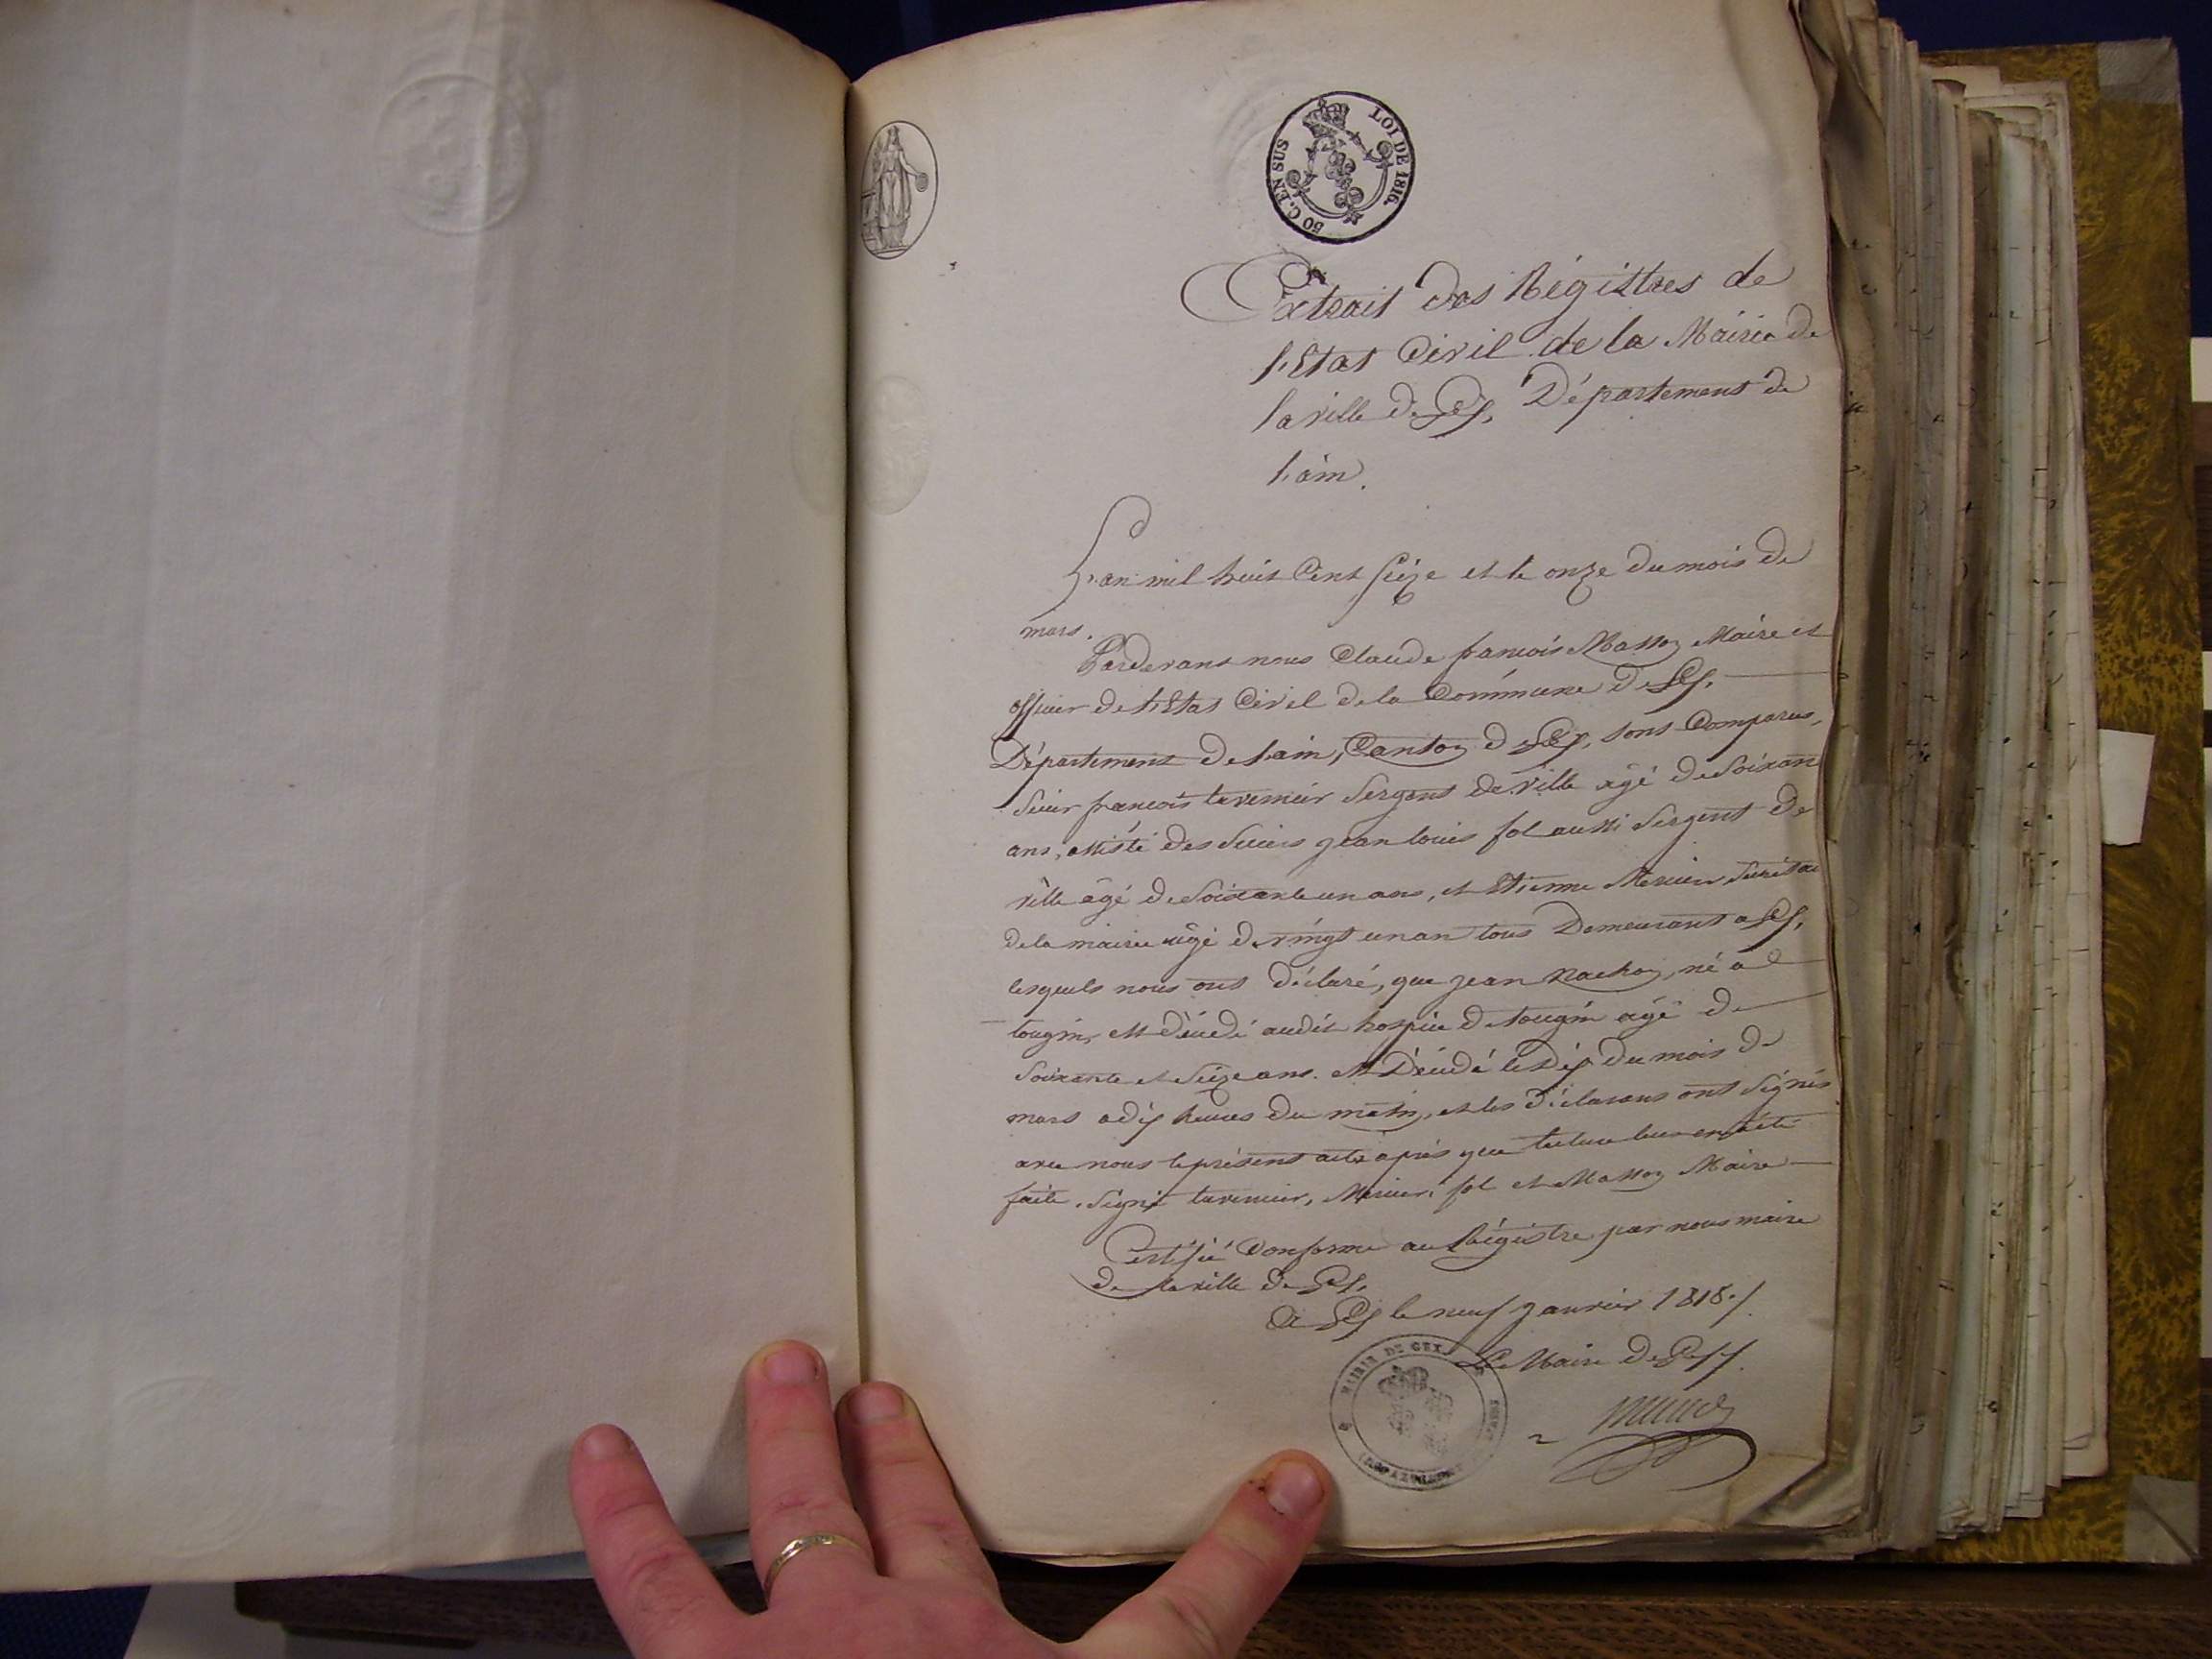 LOI DE 1816.
50 C. EN SUS
Extrait des Régistres de
l'Etat Civil de la Mairie de
la ville de Gex, Département de
l'ain.
L'an mil huit Cent seize et le onze du mois de
mars.
Pardevant nous Claude francois Masson Maire et
officier de l'Etat Civil de la Commune de Gex,
Département de l'ain, Canton de Gex, sont Comparus,
Sieur francois tavernier Sergent de ville âgé de Soixant
ans, assisté des Sieurs jean louis fol aussi Sergent de
ville âgé de Soixante un ans, et Etienne Mercier Secrétai
de la mairie âgé de vingt un an tous Demeurant a Gex,
lesquels nous ont déclaré, que jean nachon, né a
tougin, est décédé audit hospice de tougin âgé de
Soixante et Seize ans. est Décédé le Dix du mois de
mars a dix heures du matin, et les Déclarans ont Signés
avec nous le présent acte après que lecture leur en a été
faite. Signé tavernier, Mercier, fol et Masson Maire
Certifié Conforme au Régistre par nous maire
de la ville de Gex,
a Gex le neuf janvier 1818./.
Le Maire de Gex
MAIRIE DE GEX